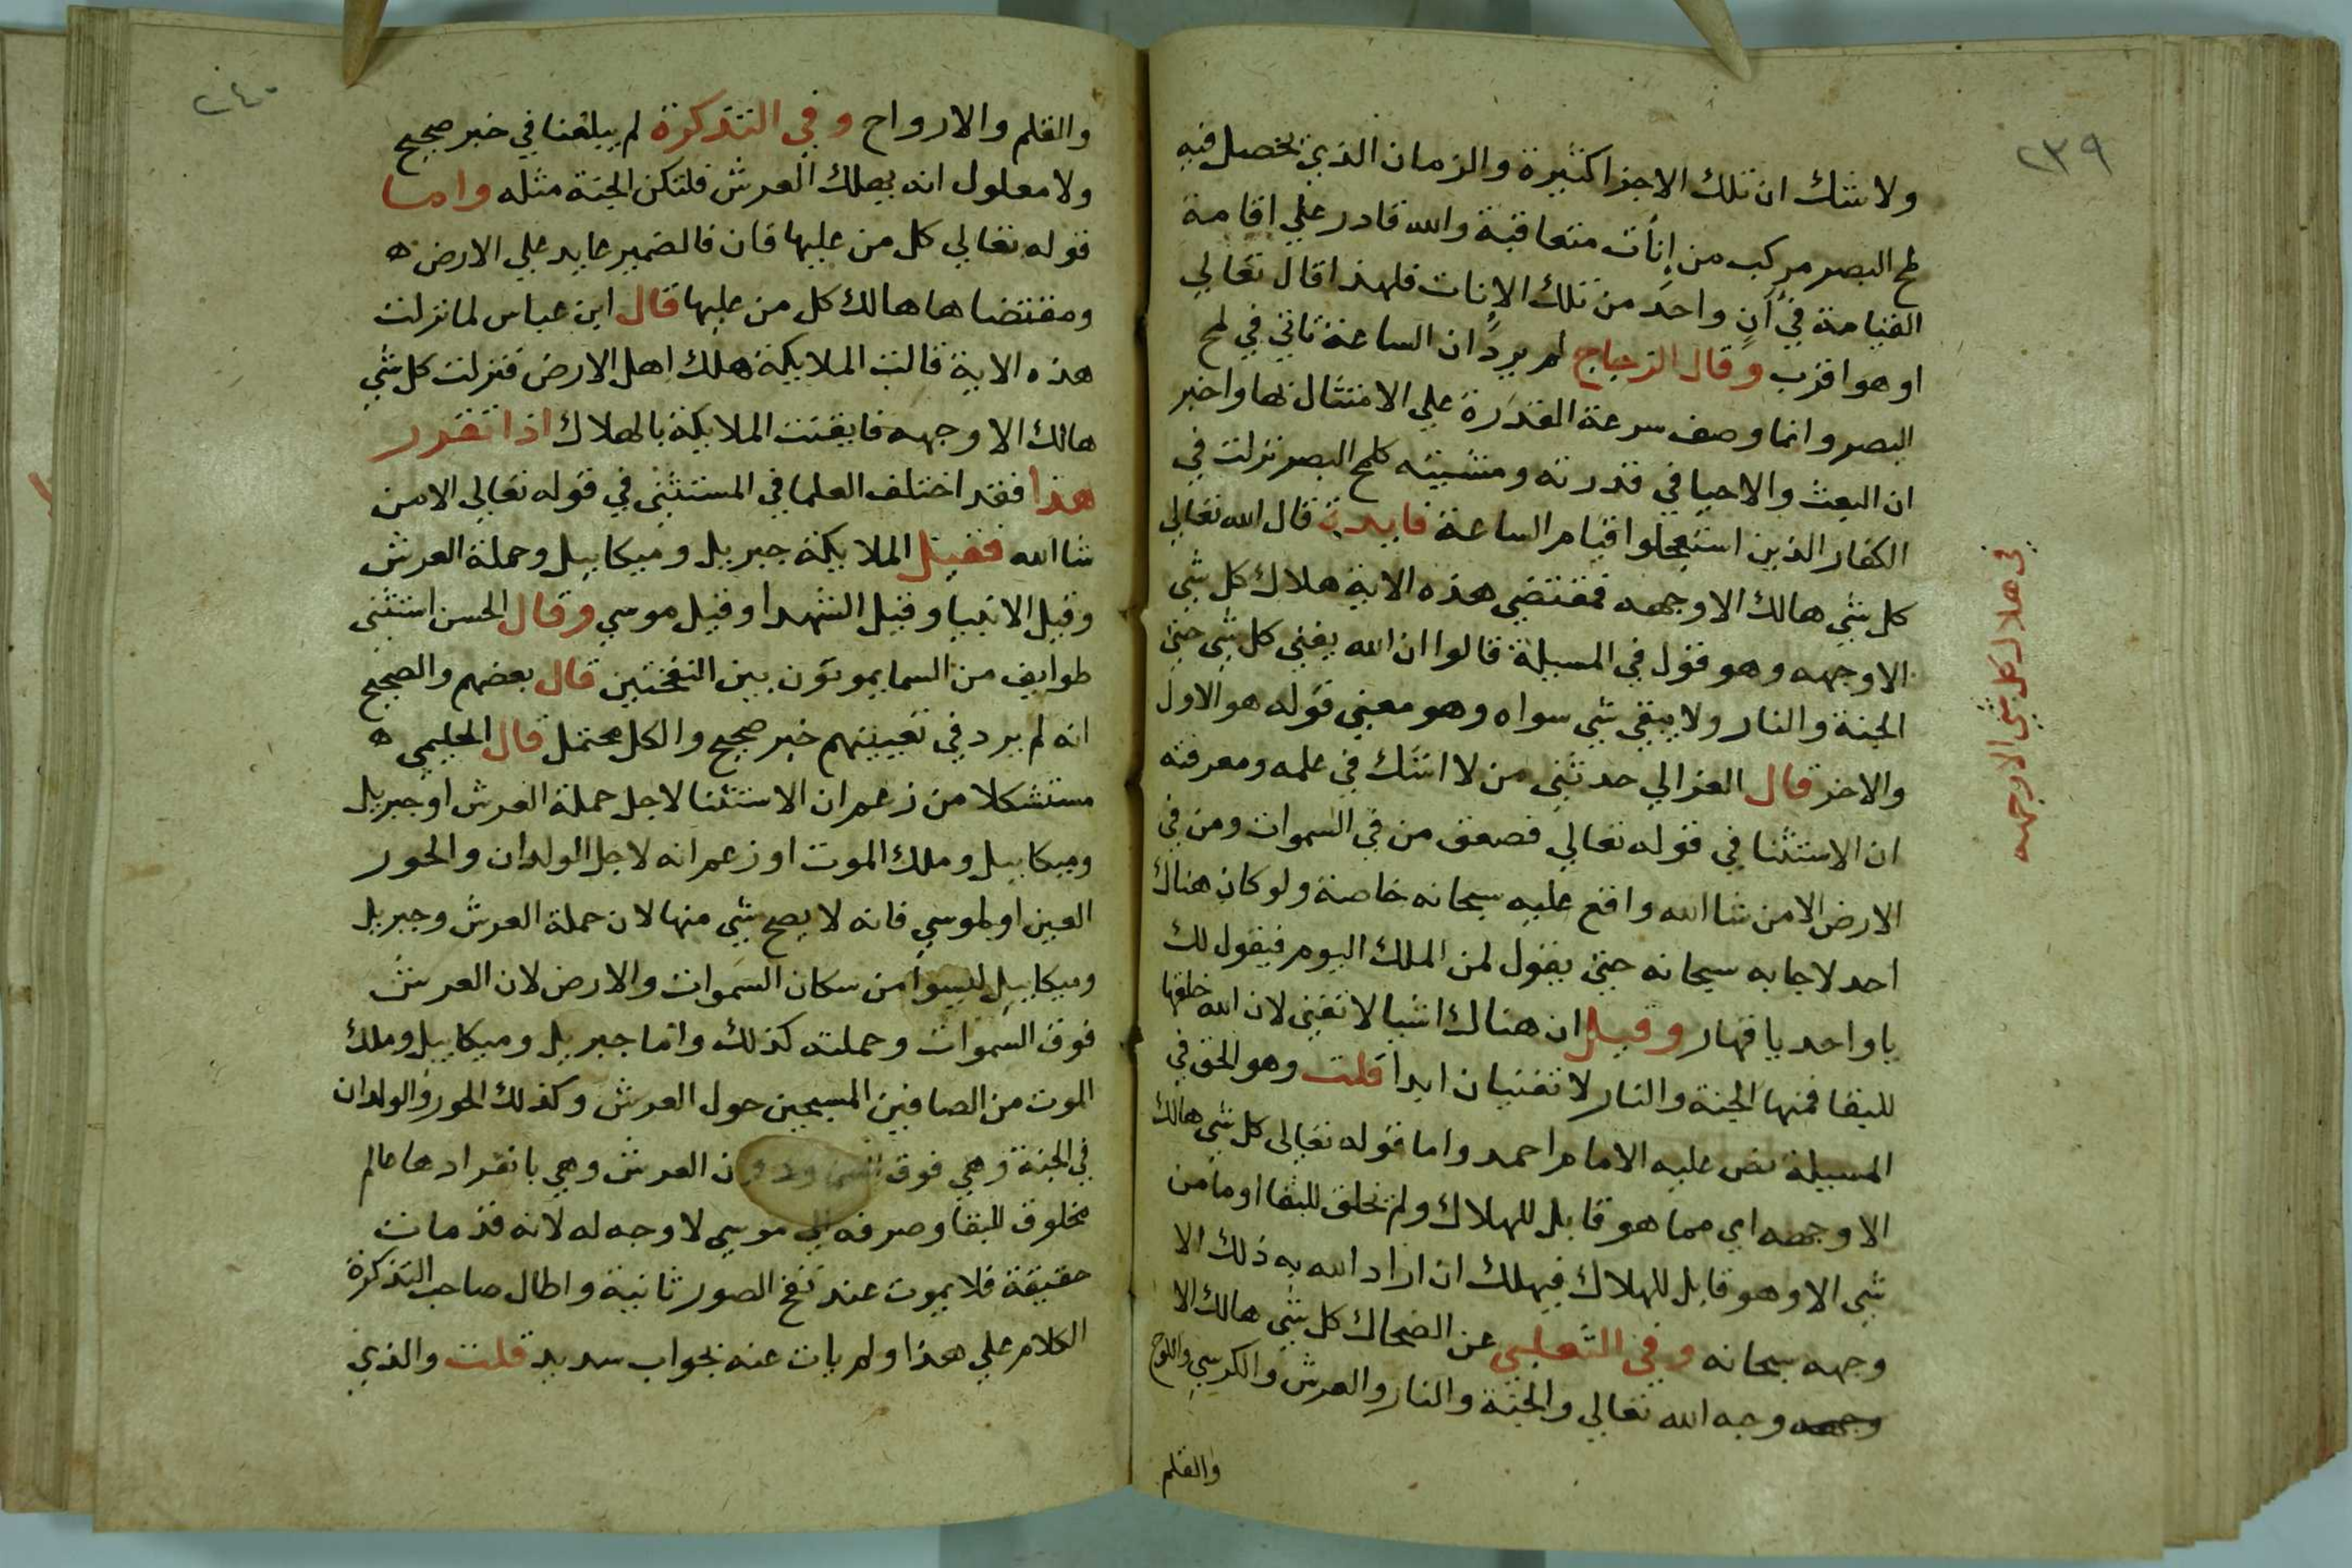 ٢٣٩
ولا شك ان تلك الاجزا كثيرة والزمان الذي يحصل فيه
لمح البصر مركب من اٰنات متعاقبة والله قادر علي اقامة
القيامة في آنٍ واحدٍ من تلك الاٰنات فلهذا قال تعالي
او هو اقرب وقال الزجاج لم يردْ ان الساعة تاتي في لمح
البصر وانما وصف سرعة القدرة علي الامتثال بها واخبر
ان البعث والاحيا في قدرته ومشيئته كلمح البصر نزلت في
الكفار الذين استعجلوا قيام الساعة فايدة قال الله تعالي
كل شي هالك الا وجهه فمقتضي هذه الاية هلاك كل شي
الا وجهه وهو قول في المسيلة قالوا ان الله يفني كل شي حتي
الجنة والنار ولا يبقي شي سواه وهو معني قوله هو الاول
والاخر قال الغزالي حدثني من لا اشك في علمه ومعرفته
ان الاستثنا في قوله تعالي فصعق من في السموات ومن في
الارض الا من شا الله واقع عليه سبحانه خاصة ولو كان هناك
احد لاجابه سبحانه حتي يقول لمن الملك اليوم فيقول لك
يا واحد يا قهار وقيل ان هناك اشيا لا تفني لان الله خلقها
للبقا فمنها الجنة والنار لا تفنيان ابدا قلت وهو الحق في
المسيلة نص عليه الامام احمد واما قوله تعالي كل شي هالك
الا وجهه اي مما هو قابل للهلاك ولم يخلق للبقا او ما من
شي الا وهو قابل للهلاك فيهلك ان اراد الله به ذلك الا
وجهه سبحانه وفي الثعلبي عن الضحاك كل شي هالك الا
وجهه وجه الله تعالي والجنة والنار والعرش والكرسي واللوح
والقلم
في هلاك كل شي الا وجهه
٢٤٠
والقلم والارواح وفي التذكرة لم يبلغنا في خبر صحيح
ولا معلول انه يهلك العرش فلتكن الجنة مثله واما
قوله تعالي كل من عليها فان فالضمير عايد علي الارض ه
ومقتضاها هالك كل من عليها قال ابن عباس لما نزلت
هذه الاية قالت الملايكة هلك اهل الارض فنزلت كل شي
هالك الا وجهه فايقنت الملايكة بالهلاك اذا تقرر
هذا فقد اختلف العلما في المستثني في قوله تعالي الا من
شا الله فقيل الملايكة جبريل وميكاييل وحملة العرش
وقيل الانبيا وقيل الشهدا وقيل موسي وقال الحسن استثني
طوايف من السما يموتون بين النفختين قال بعضهم والصحيح
انه لم يرد في تعيينهم خبر صحيح والكل محتمل قال الحليمي ه
مستشكلا من زعم ان الاستثنا لاجل حملة العرش او جبريل
وميكاييل وملك الموت او زعم انه لاجل الولدان والحور
العين او لموسي فانه لا يصح شي منها لان حملة العرش وجبريل
وميكاييل ليسوا من سكان السموات والارض لان العرش
فوق السموات وحملته كذلك واما جبريل وميكاييل وملك
الموت من الصافين المسبحين حول العرش وكذلك الحور والولدان
في الجنة وهي فوق السما ودون العرش وهي بانفرادها عالم
مخلوق للبقا وصرفه الي موسي لا وجه له لانه قد مات
حقيقة فلا يموت عند نفخ الصور ثانية واطال صاحب التذكرة
الكلام علي هذا ولم يات عنه بجواب سديد قلت والذي